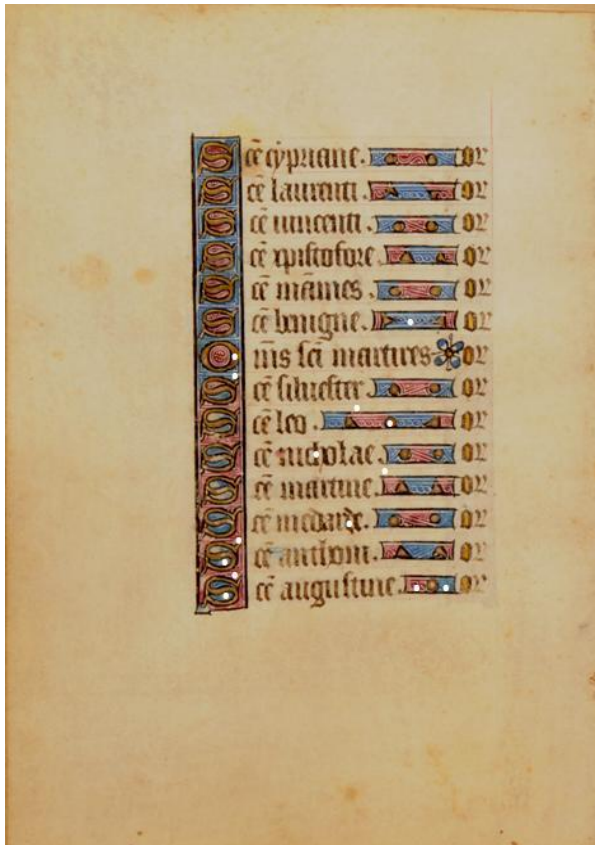 Scē cypriane. or
Scē laurenti. or
Scē vincenti. or
Scē xpistofore or
Scē māmes. or
Scē benigne. or
Om̄s sc̄i martires or
Scē silvester. or
Scē leo. or
Scē nicholae. or
Scē martine. or
Scē medarde. or
Scē anthoni. or
Scē augustine. or